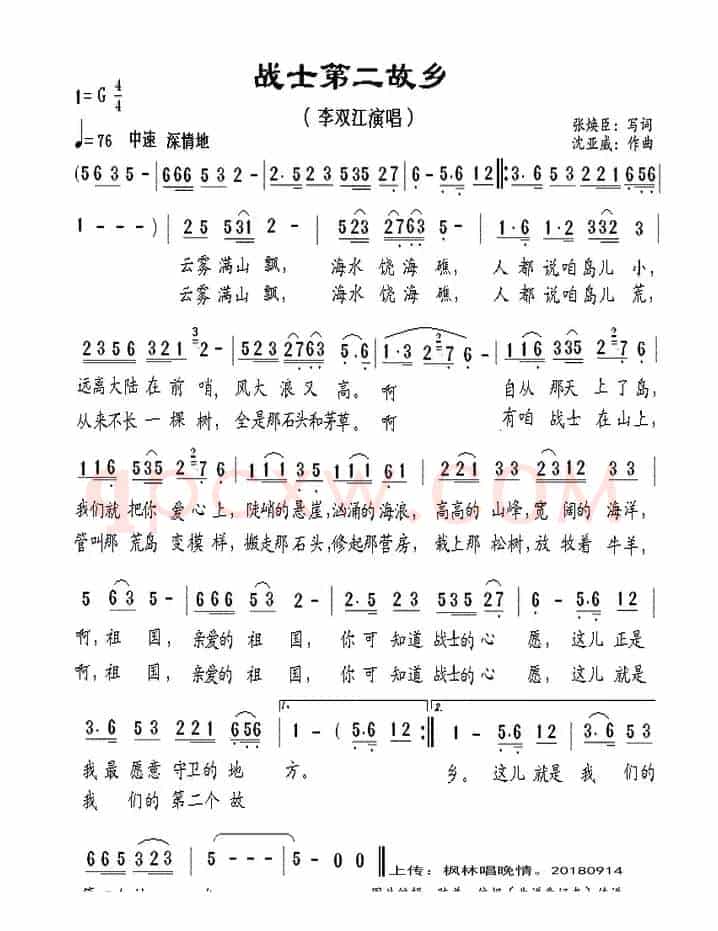 战士第二故乡
1=G 4/4
（李双江演唱）
♩=76 中速 深情地
张焕臣：写词
沈亚威：作曲
(5 6 3 5 - | 6 6 6 5 3 2 - | 2· 5 2 3 5 3 5 2 7 | 6 - 5·6 1 2 ‖: 3·6 5 3 2 2 1 6 5 6
1 - - -) | 2 5 5 3 1 2 - | 5 2 3 2 7 6 3 5 - | 1·6 1·2 3 3 2 3 |
云雾满山飘， 海水饶海礁， 人都说咱岛儿小，
云雾满山飘， 海水饶海礁， 人都说咱岛儿荒，
2 3 5 6 3 2 1 3 2 - | 5 2 3 2 7 6 3 5·6 | 1·3 2 2 7 6 | 1 1 6 3 3 5 2·7 6 |
远离大陆在前哨，风大浪又高。啊 自从那天上了岛，
从来不长一棵树，全是那石头和茅草。啊 有咱战士在山上，
1 1 6 5 3 5 2 2·7 6 | 1 1 1 3 5 1 1 1 6 1 | 2 2 1 3 3 2 3 1 2 3 3 |
qpcxw.com
我们就把你爱心上，陡峭的悬崖，汹涌的海浪，高高的山峰，宽阔的海洋，
管叫那荒岛变模样，搬走那石头，修起那营房，栽上那松树，放牧着牛羊，
5 6 3 5 - | 6 6 6 5 3 2 - | 2·5 2 3 5 3 5 2 7 | 6 - 5·6 1 2 |
啊，祖国，亲爱的祖国，你可知道战士的心愿，这儿正是
啊，祖国，亲爱的祖国，你可知道战士的心愿，这儿就是
1. 2.
3·6 5 3 2 2 1 6 5 6 | 1 - (5·6 1 2 :‖ 1 - 5·6 1 2 | 3·6 5 3
我最愿意守卫的地方。 乡。这儿就是我们的
我们的第二个故
6 6 5 3 2 3 | 5 - - - | 5 - 0 0 ‖
上传：枫林唱晚情。20180914